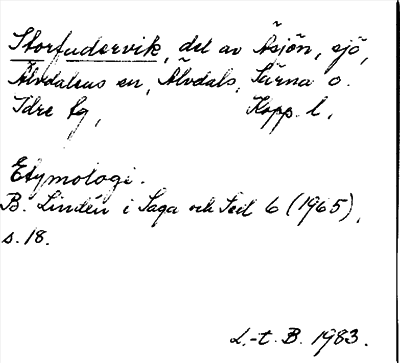 Storfudervik, del av Åsjön, sjö,
Älvdalens sn, Älvdals, Särna o.
Idre tg, Kopp. l.
Etymologi.
B. Lindén i Saga och Sed 6 (1965),
s. 18.
L.-t. B. 1983.